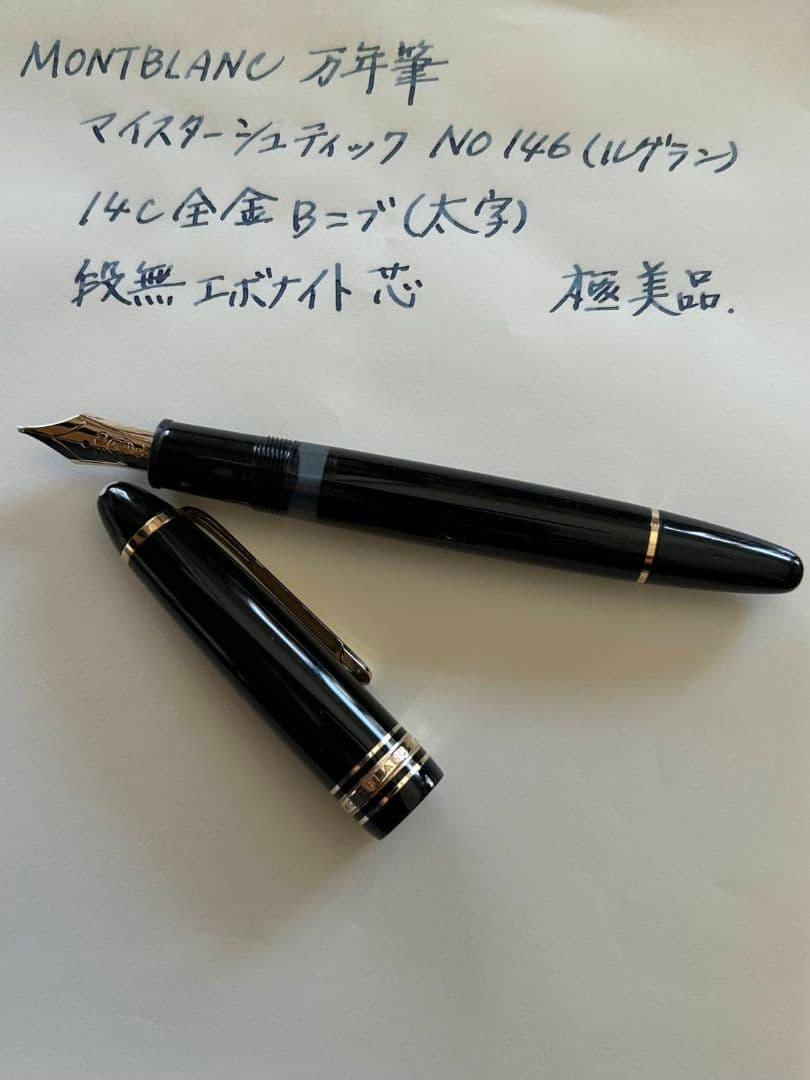 MONTBLANC 万年筆
マイスターシュティック NO 146 (ルグラン)
14C 全金 Bニブ(太字)
段無 エボナイト 芯 極美品.